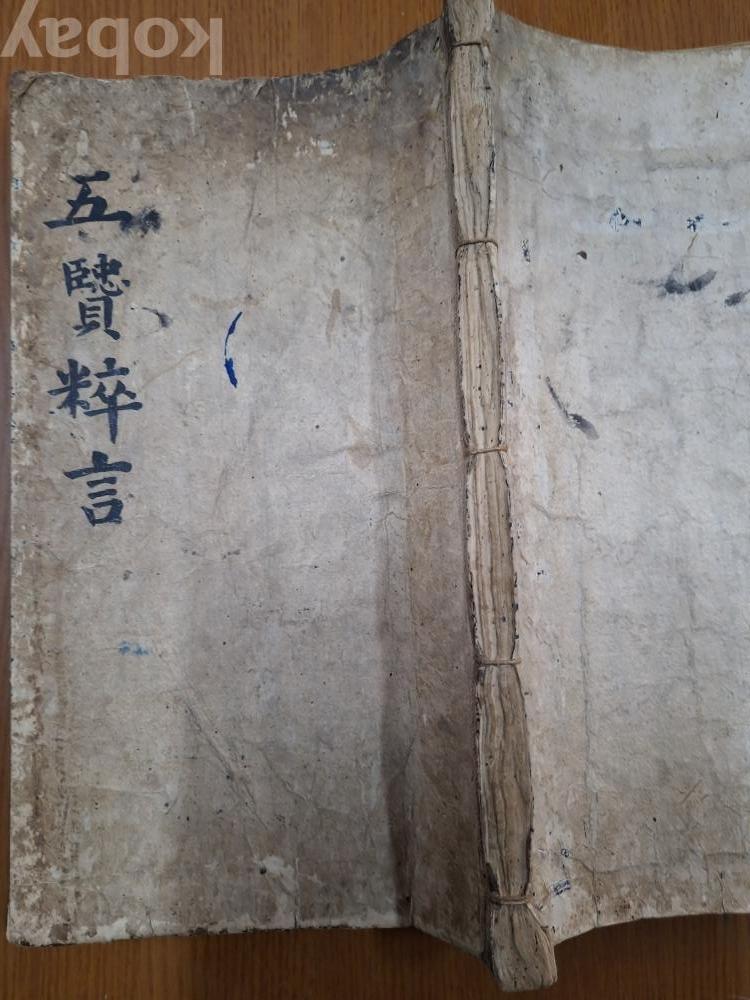 kobay
五贒粹言